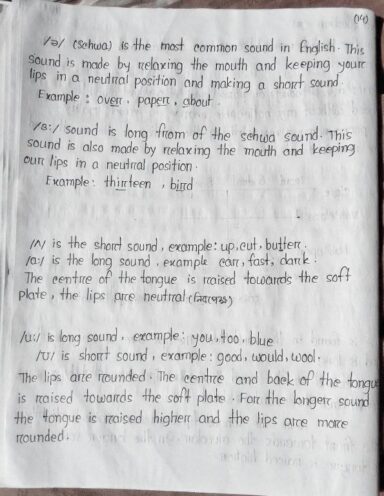 (14)
/ə/ (schwa) is the most common sound in English. This
sound is made by relaxing the mouth and keeping your
lips in a neutral position and making a short sound.
Example : over, paper, about.
/ɜ:/ sound is long from of the schwa sound. This
sound is also made by relaxing the mouth and keeping
our lips in a neutral position.
Example: thirteen, bird
/ʌ/ is the short sound, example: up, cut, butter.
/a:/ is the long sound, example car, fast, dark.
The centre of the tongue is raised towards the soft
plate, the lips are neutral
/u:/ is long sound, example: you, too, blue
/ʊ/ is short sound, example: good, would, wool.
The lips are rounded. The centre and back of the tongue
is raised towards the soft plate. For the longer sound
the tongue is raised higher and the lips are more
rounded.